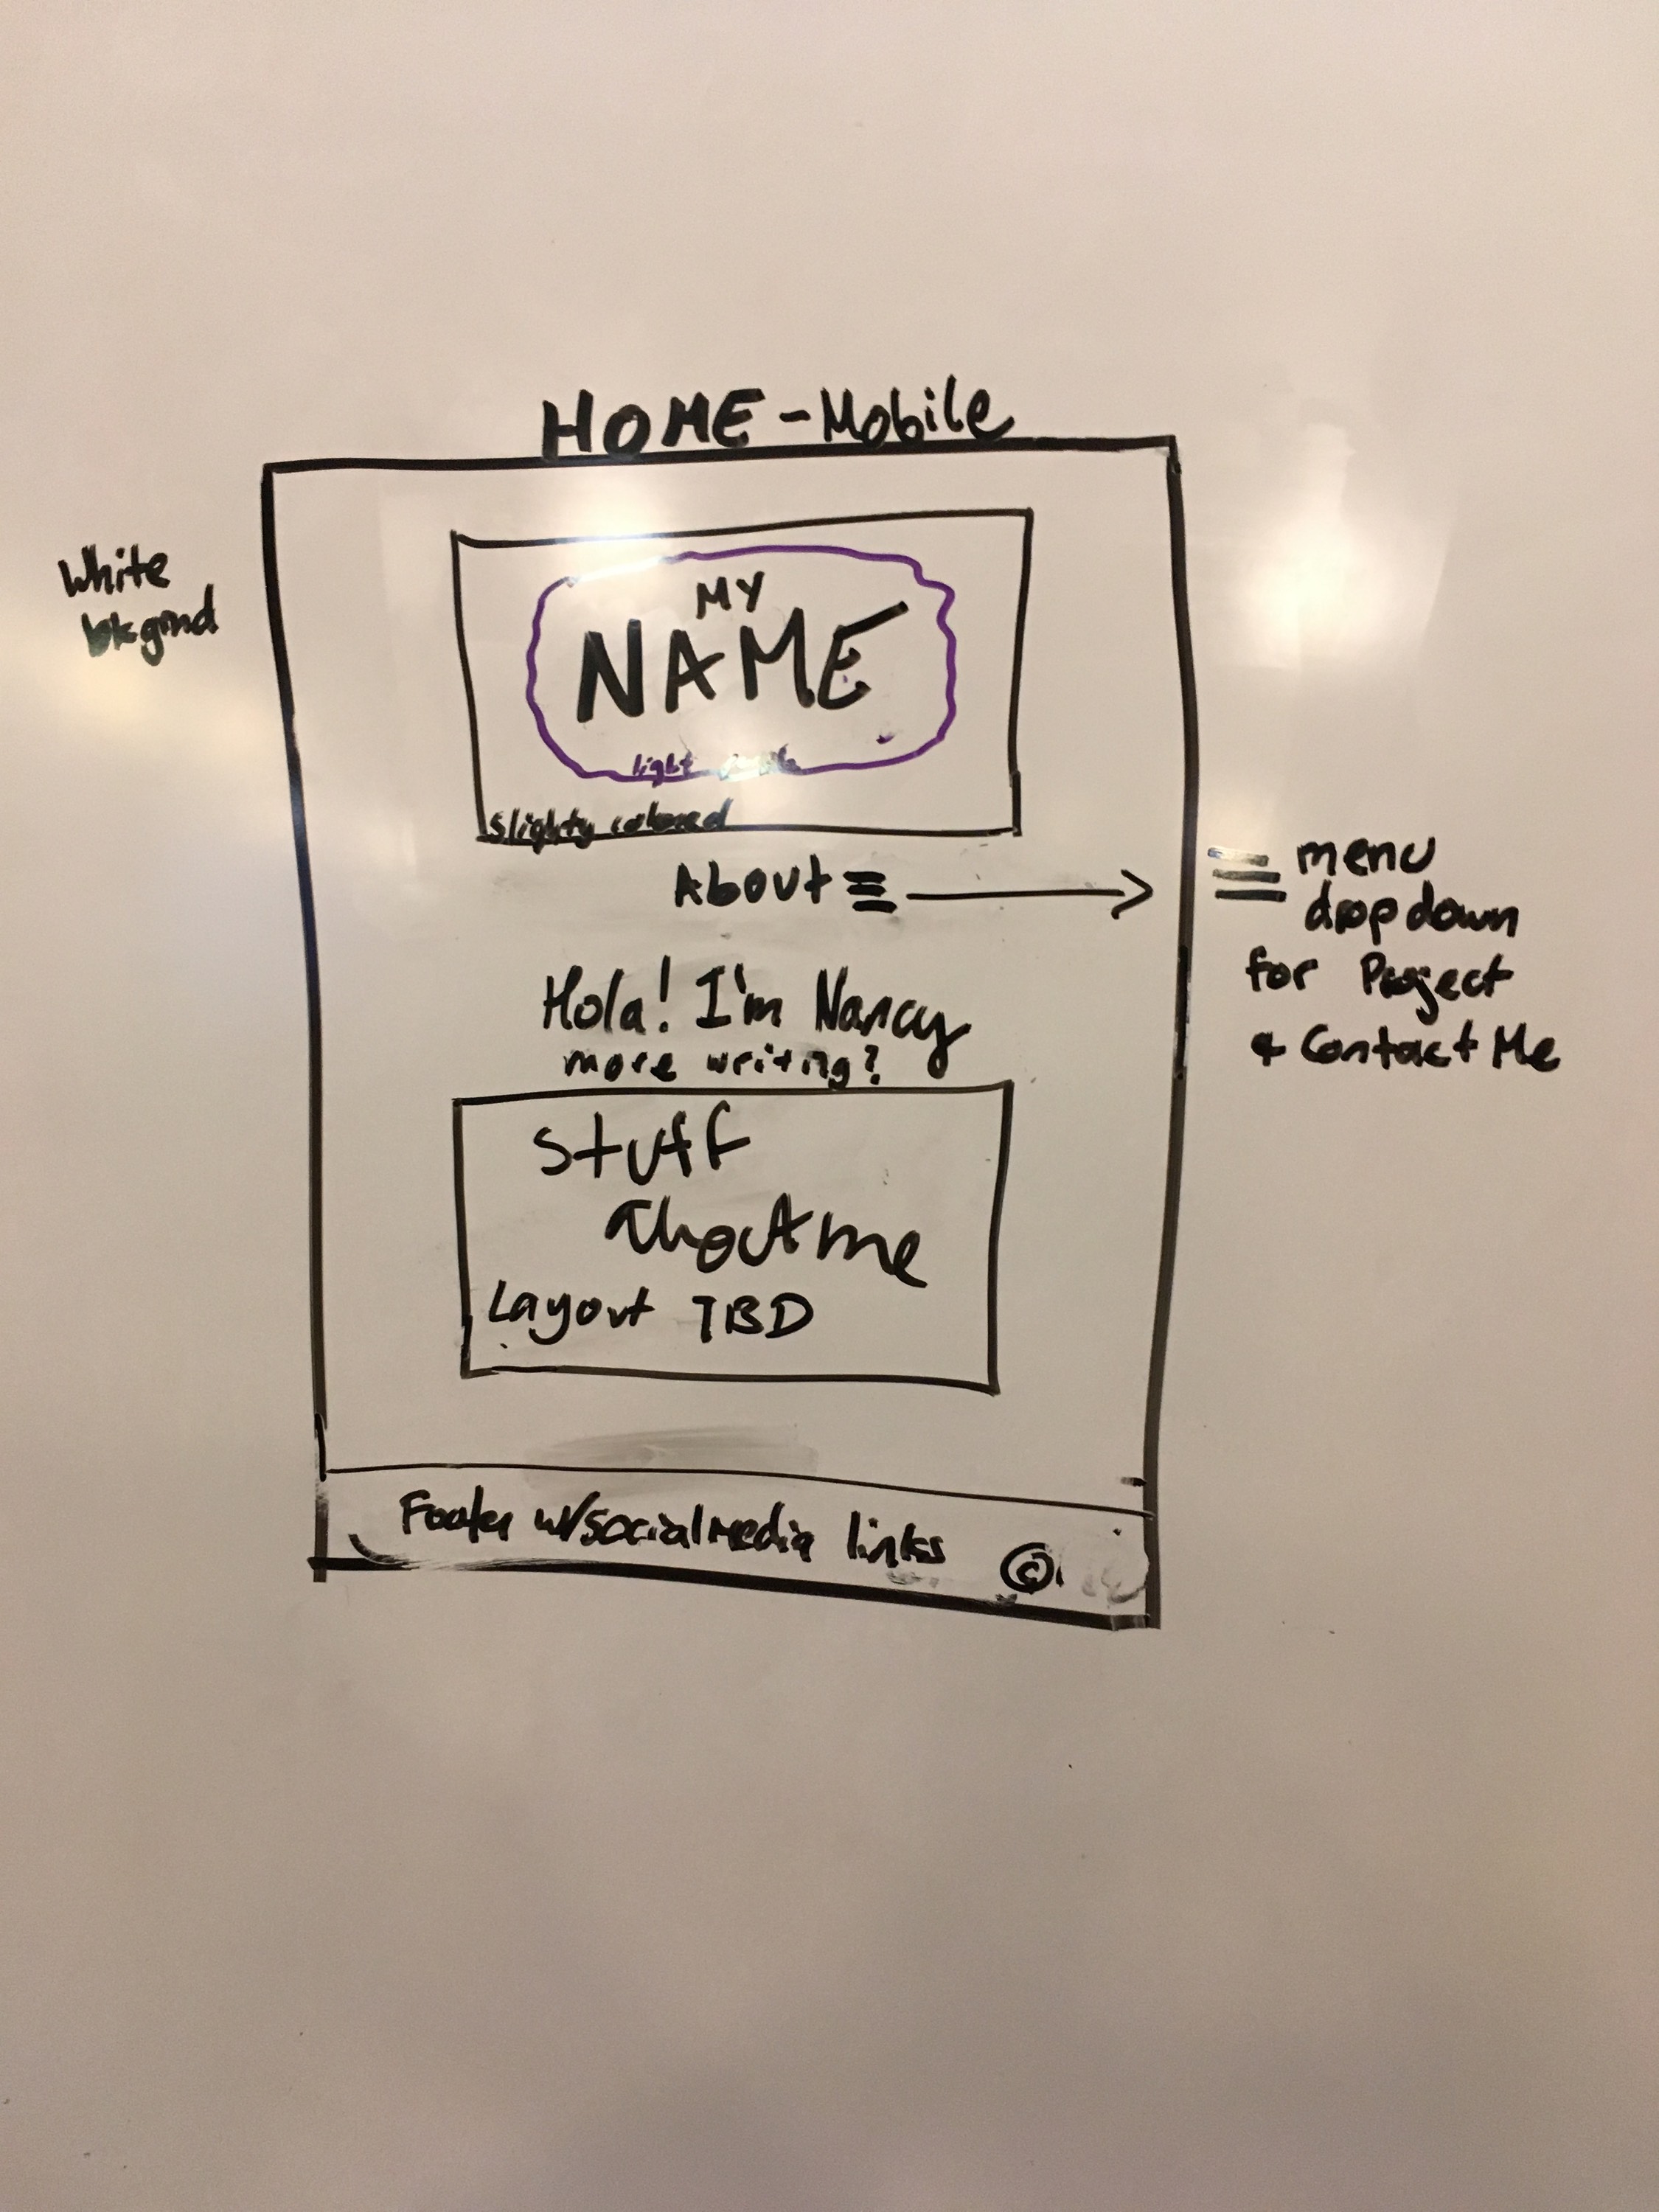 HOME - Mobile
White
bkgrnd
MY
NAME
light
slighty colored
About
menu
dropdown
for Project
& Contact Me
Hola! I'm Nancy
more writing?
Stuff
About me
Layout TBD
Footer w/social media links ©